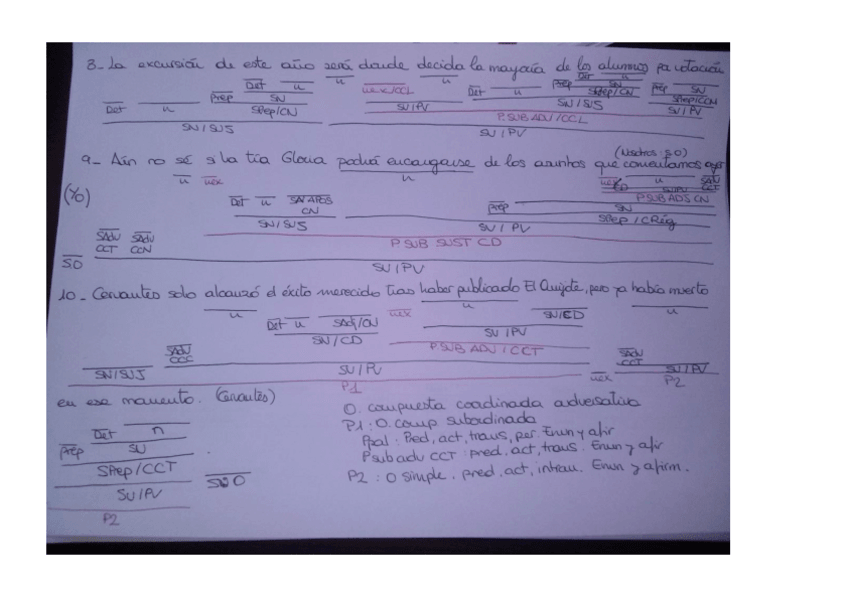 8- La excursión de este año será donde decida la mayoría de los alumnos por votación
Det n n nex/CCL n Det n Prep Det n Prep SN
Det n Prep SN SV/PV SN SPrep/CN SPrep/CN
SPrep/CN SN/SUJ SV/PV
P. SUB ADV/CCL
SN/SUJ SV/PV
(Nosotros: SO)
9- Aún no sé si la tía Gloria podrá encargarse de los asuntos que comentamos ayer
n nex n nex CD n SAdv CCT
(Yo) SV/PV
Det n SN APOS CN Prep P SUB ADJ CN
SN
SN/SUJ SV/PV SPrep/CRég
SAdv CCT SAdv CCN P SUB SUST CD
SO SV/PV
10- Cervantes solo alcanzó el éxito merecido tras haber publicado El Quijote, pero ya había muerto
n Det n SAdj/CN nex n SN/CD n
SN/CD SV/PV
P SUB ADV/CCT
SN/SUJ SAdv CCC SV/PV nex SAdv CCT SV/PV
P1 P2
en ese momento. (Cervantes)
Det n
Prep SN
SPrep/CCT
SV/PV SO
P2
O. compuesta coordinada adversativa
P1: O. comp subordinada
Ppal: Pred, act, trans, per. Enun y afir
P sub adv CCT: pred, act, trans. Enun y afir
P2: O simple. pred. act, intran. Enun y afirm.